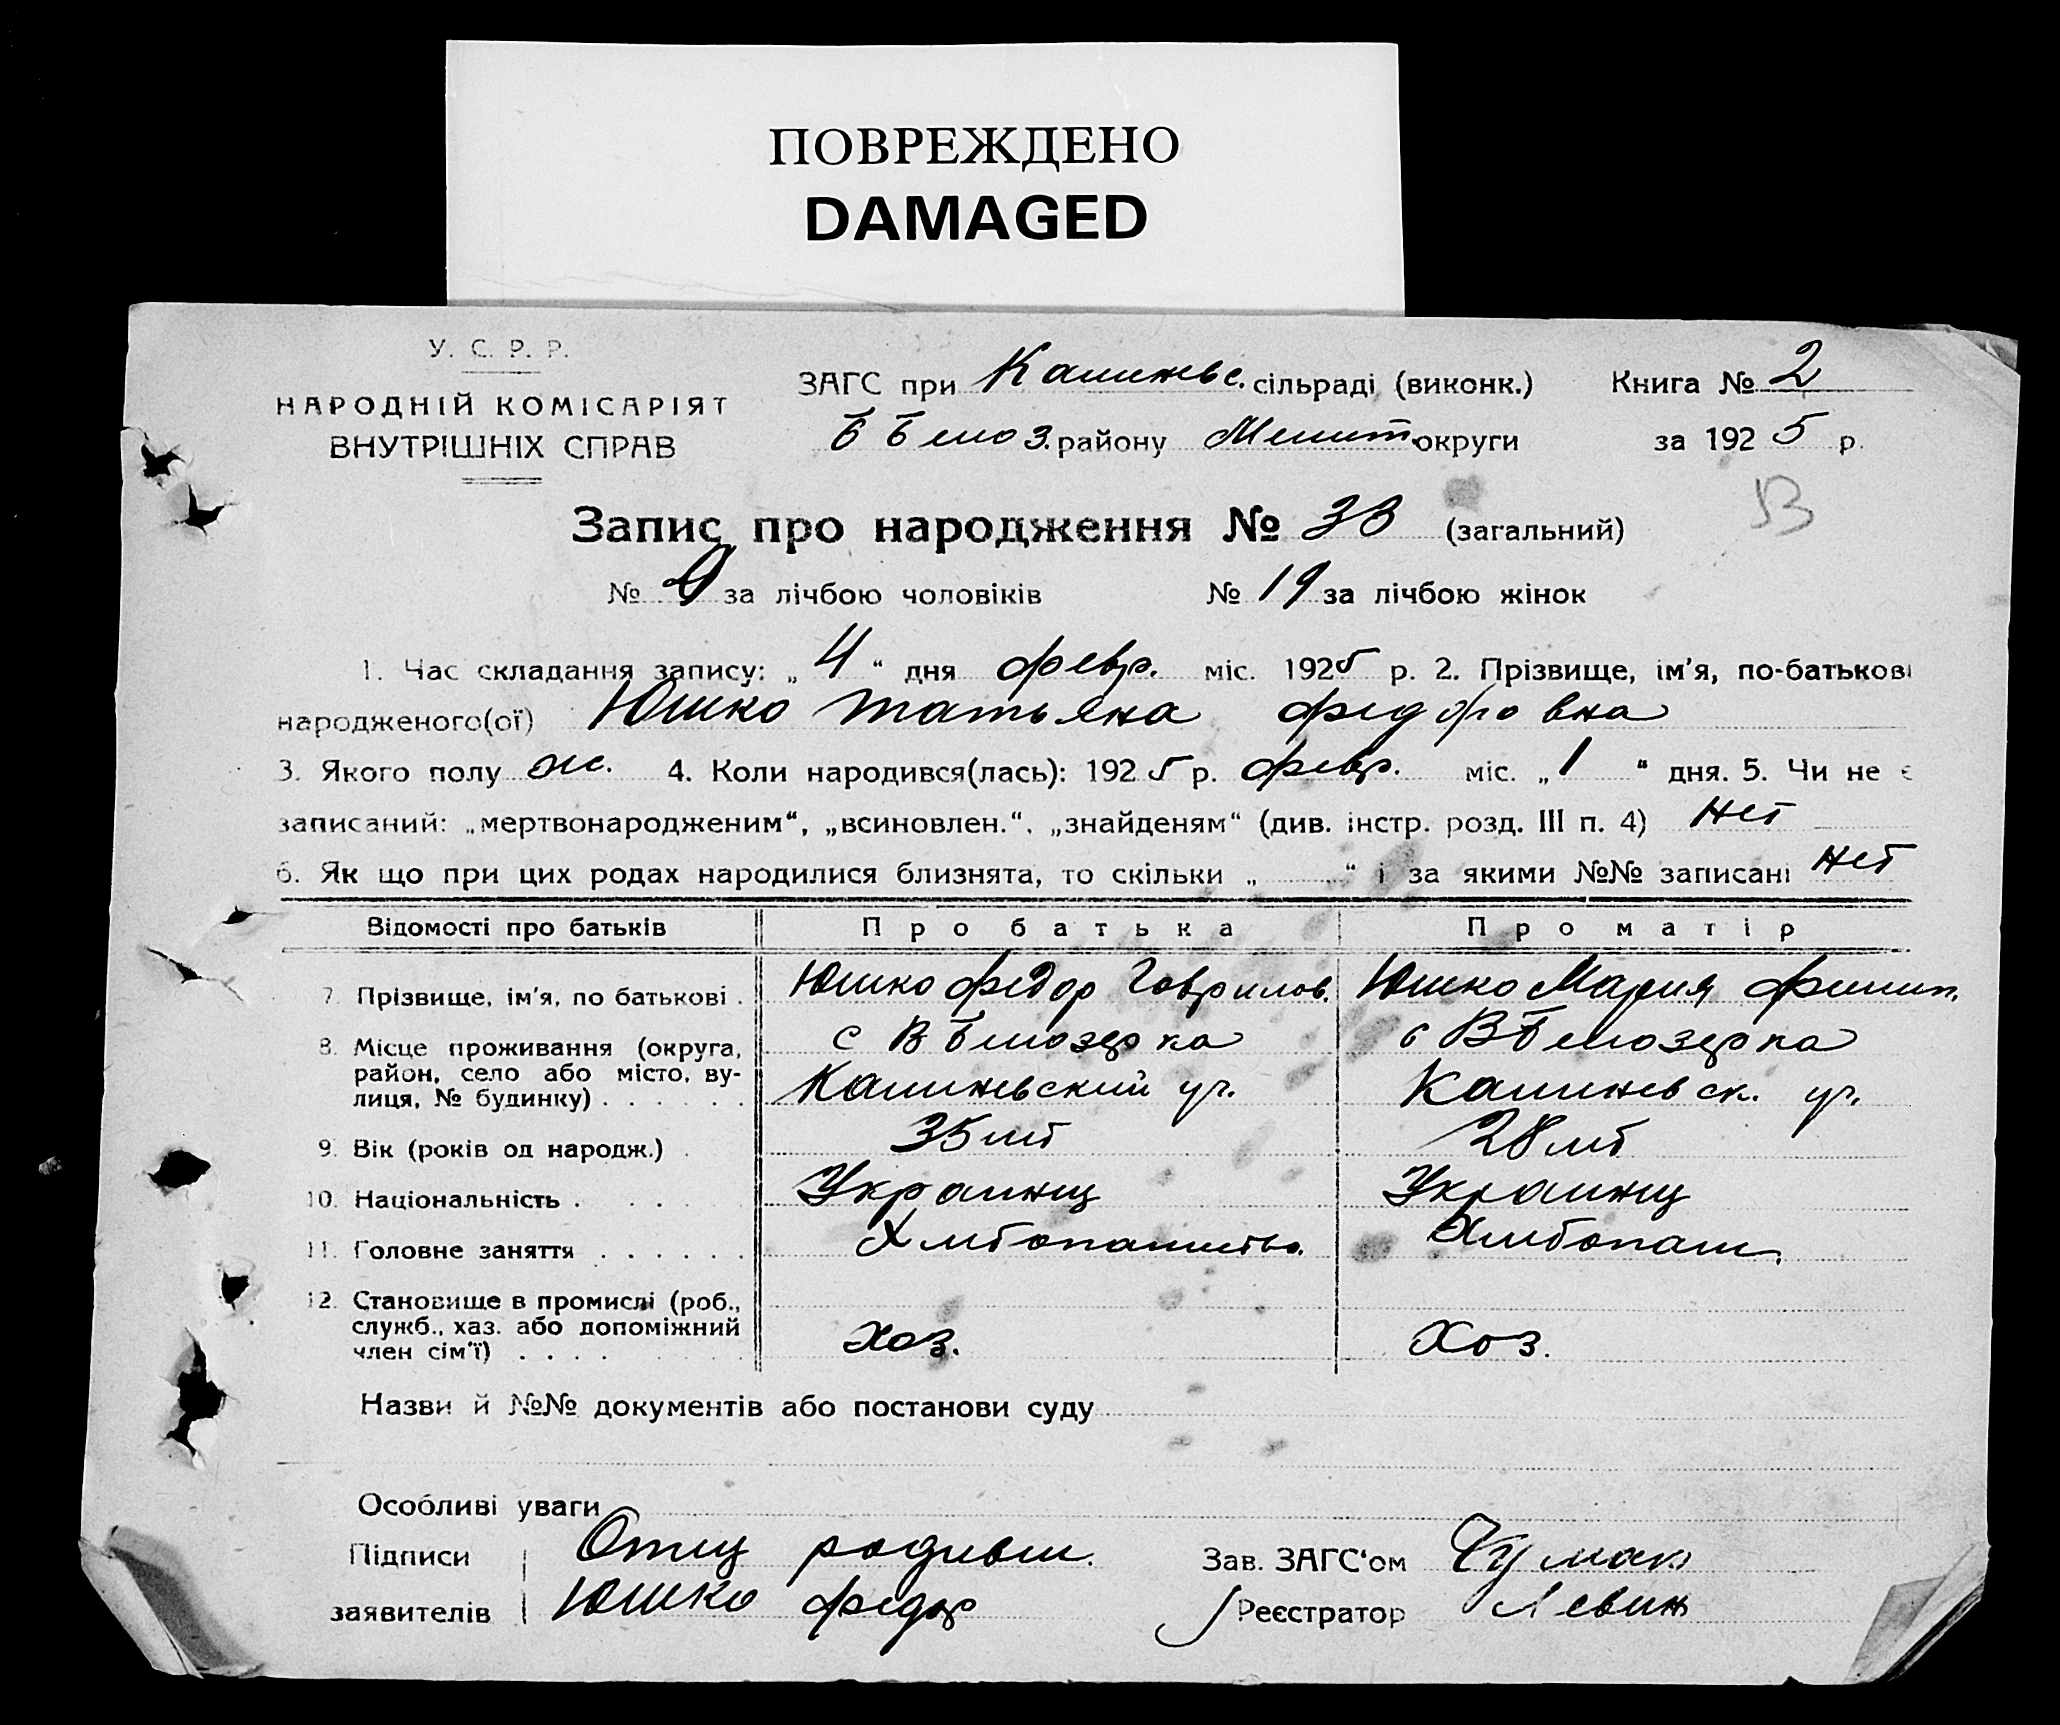 ПОВРЕЖДЕНО
DAMAGED
У. С. Р. Р.
НАРОДНІЙ КОМІСАРІЯТ
ВНУТРІШНІХ СПРАВ
ЗАГС при Калинвс. сільраді (виконк.) Книга № 2
Б Белоз. району Мелит. округи за 1925 р.
Запис про народження № 38 (загальний)
№ за лічбою чоловіків № 19 за лічбою жінок
1. Час складання запису: „4“ дня февр. міс. 1925 р. 2. Прізвище, ім'я, по-батькові
народженого(ої) Юшко Татьяна Федоровна
3. Якого полу ж. 4. Коли народився(лась): 1925 р. февр. міс. „1“ дня. 5. Чи не є
записаний: „мертвонародженим“, „всиновлен.“, „знайденям“ (див. інстр. розд. III п. 4) нет
6. Як що при цих родах народилися близнята, то скільки „ “ і за якими №№ записані нет
Відомості про батьків Про батька Про матір
7. Прізвище, ім'я, по батькові . Юшко Федор Гаврилов. Юшко Мария Филип.
8. Місце проживання (округа, с В Белозерка с В Белозерка
район, село або місто, ву-
лиця, № будинку) . . . . . . Калиневский уч. Калиневск. уч.
9. Вік (років од народж.) . 35 лет 28 лет
10. Національність . . . . Украинц Украинц
11. Головне заняття . . . . . . Хлебопашество. Хлебопаш.
12. Становище в промислі (роб.,
служб., хаз. або допоміжний
член сім'ї) . . . . хоз. Хоз.
Назви й №№ документів або постанови суду
Особливі уваги
Підписи Отец родивш. Зав. ЗАГС'ом Чумак
заявителів Юшко Федор Реєстратор Левин